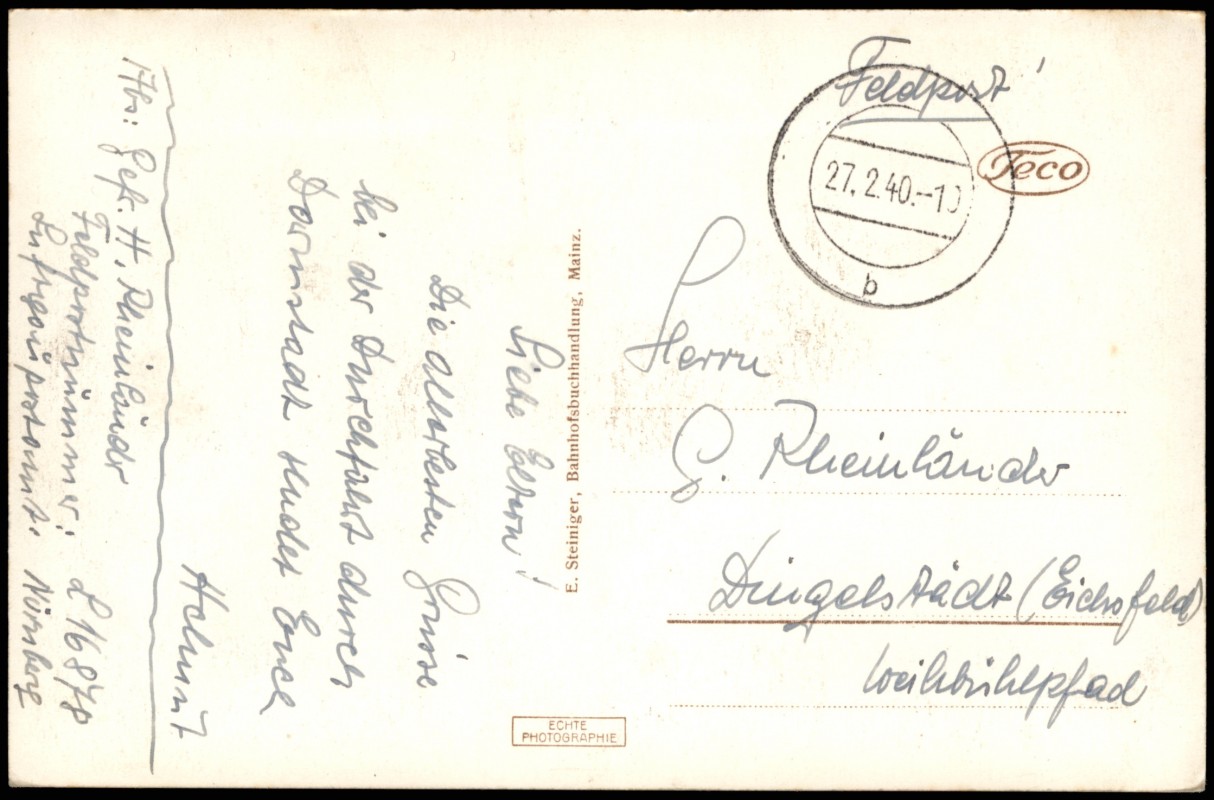 Feldpost
27.2.40.-10
b
Teco
Herrn
G. Rheinländer
Dingelstädt (Eichsfeld)
Weihbühlpfad
E. Steiniger, Bahnhofsbuchhandlung, Mainz.
ECHTE
PHOTOGRAPHIE
Liebe Eltern!
Die allerbesten Grüsse
bei der Durchfahrt durch
Darmstadt sendet Euch
Helmut
Abs: Gefr. H. Rheinländer
Feldpostnummer: L 16878
Luftgaupostamt. Nürnberg